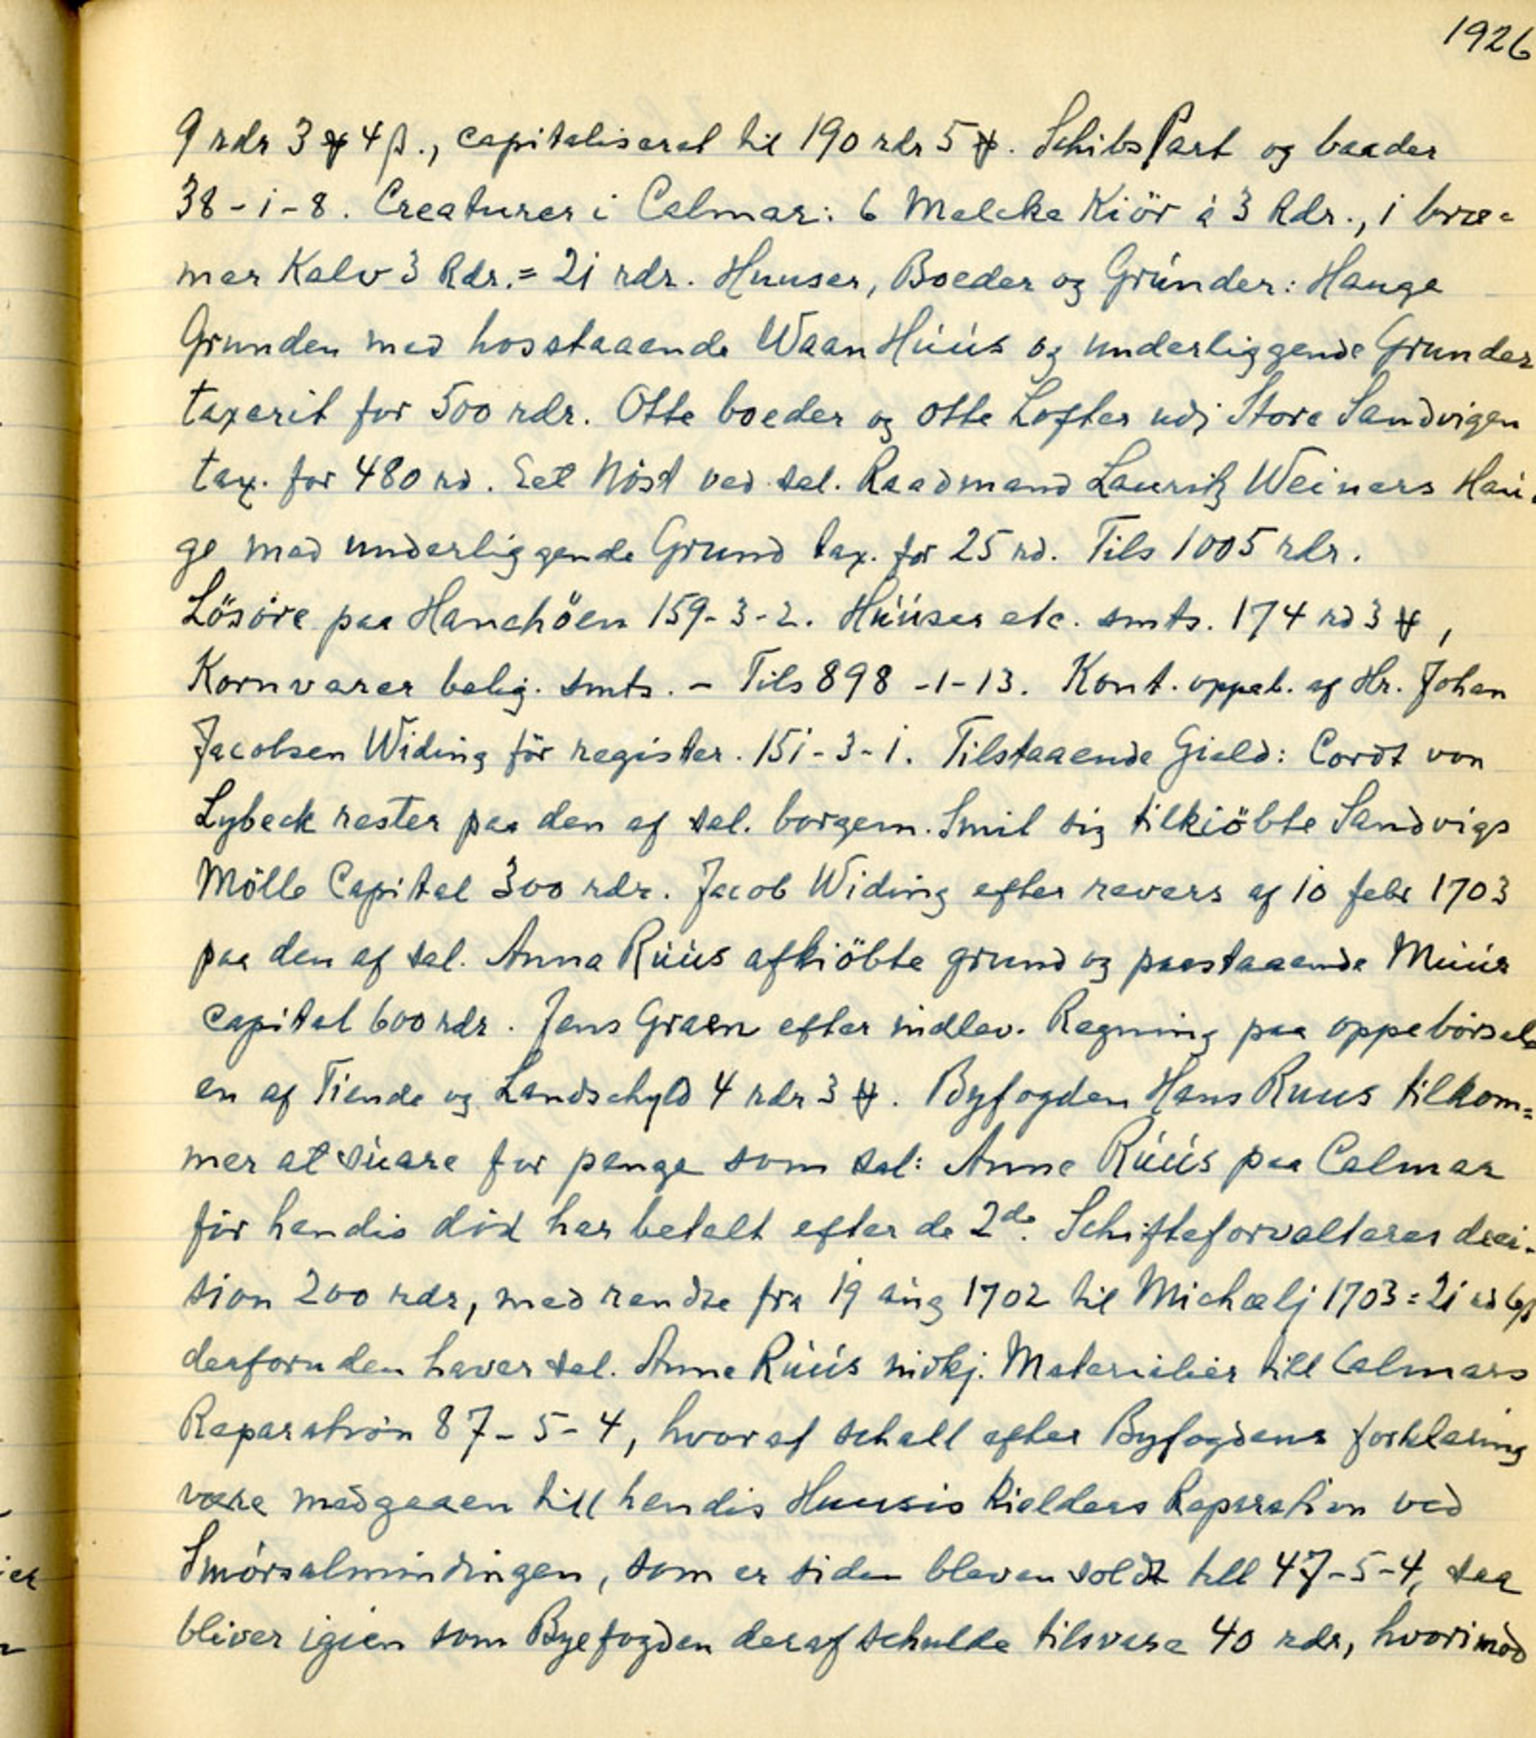 1926
9 rdr 3 ₰ 4 β., capitaliseret til 190 rdr 5 ₰. Schibs Part og baader
38-i-8. Creaturer i Calmar: 6 Melcke Kiör á 3 Rdr., i bræ=
mer Kalv 3 Rdr. = 2i rdr. Huuser, Boeder og Grúnder: Hauge
Grunden med hosstaaende Waan Húús og underliggende Grunder
taxerit for 500 rdr. Otte boeder og otte Lofter udj Store Sandvigen
tax. for 480 rd. Eet Nöst ved sal. Raadmand Lauritz Weiners Haú-
ge med underliggende Grund tax. for 25 rd. Tils 1005 rdr.
Lösöre paa Hanehöen 159-3-2. Húúser etc. smts. 174 rd 3 ₰,
Kornvarer belig. smts. - Tils 898-1-13. Kont. oppeb. af Hr. Johan
Jacobsen Widing för register. 15i-3-i. Tilstaaende Gield: Cordt von
Lybeck rester paa den af sal. borgem. Smil sig tilkiöbte Sandvigs
Mölle Capital 300 rdr. Jacob Widing efter revers af i0 febr 1703
paa den af sal. Anna Rúús afkiöbte grund og paastaaende Múúr
capital 600 rdr. Jens Graen efter indlev. Regning paa oppebörsel
en af Tiende og Landschyld 4 rdr 3 ₰. Byfogden Hans Ruus tilkom=
mer at súare for penge som sal: Anne Rúús paa Calmar
för hendis död har betalt efter de 2de. Schifteforvalteres deci-
sion 200 rdr, med rendte fra i9 aúg 1702 til Michælj 1703 = 2i rd 6β
desforuden haver sal. Anne Rúús indkj. Materialier till Calmars
Reparation 87-5-4, hvoraf schall efter Byfogdens forklaring
være medgaaen till hendis Huusis Kielders Reparation ved
Smörsalmindingen, som er siden bleven soldt till 47-5-4, saa
bliver igien som Byefogden deraf schulde tilsvare 40 rdr, hvorimod